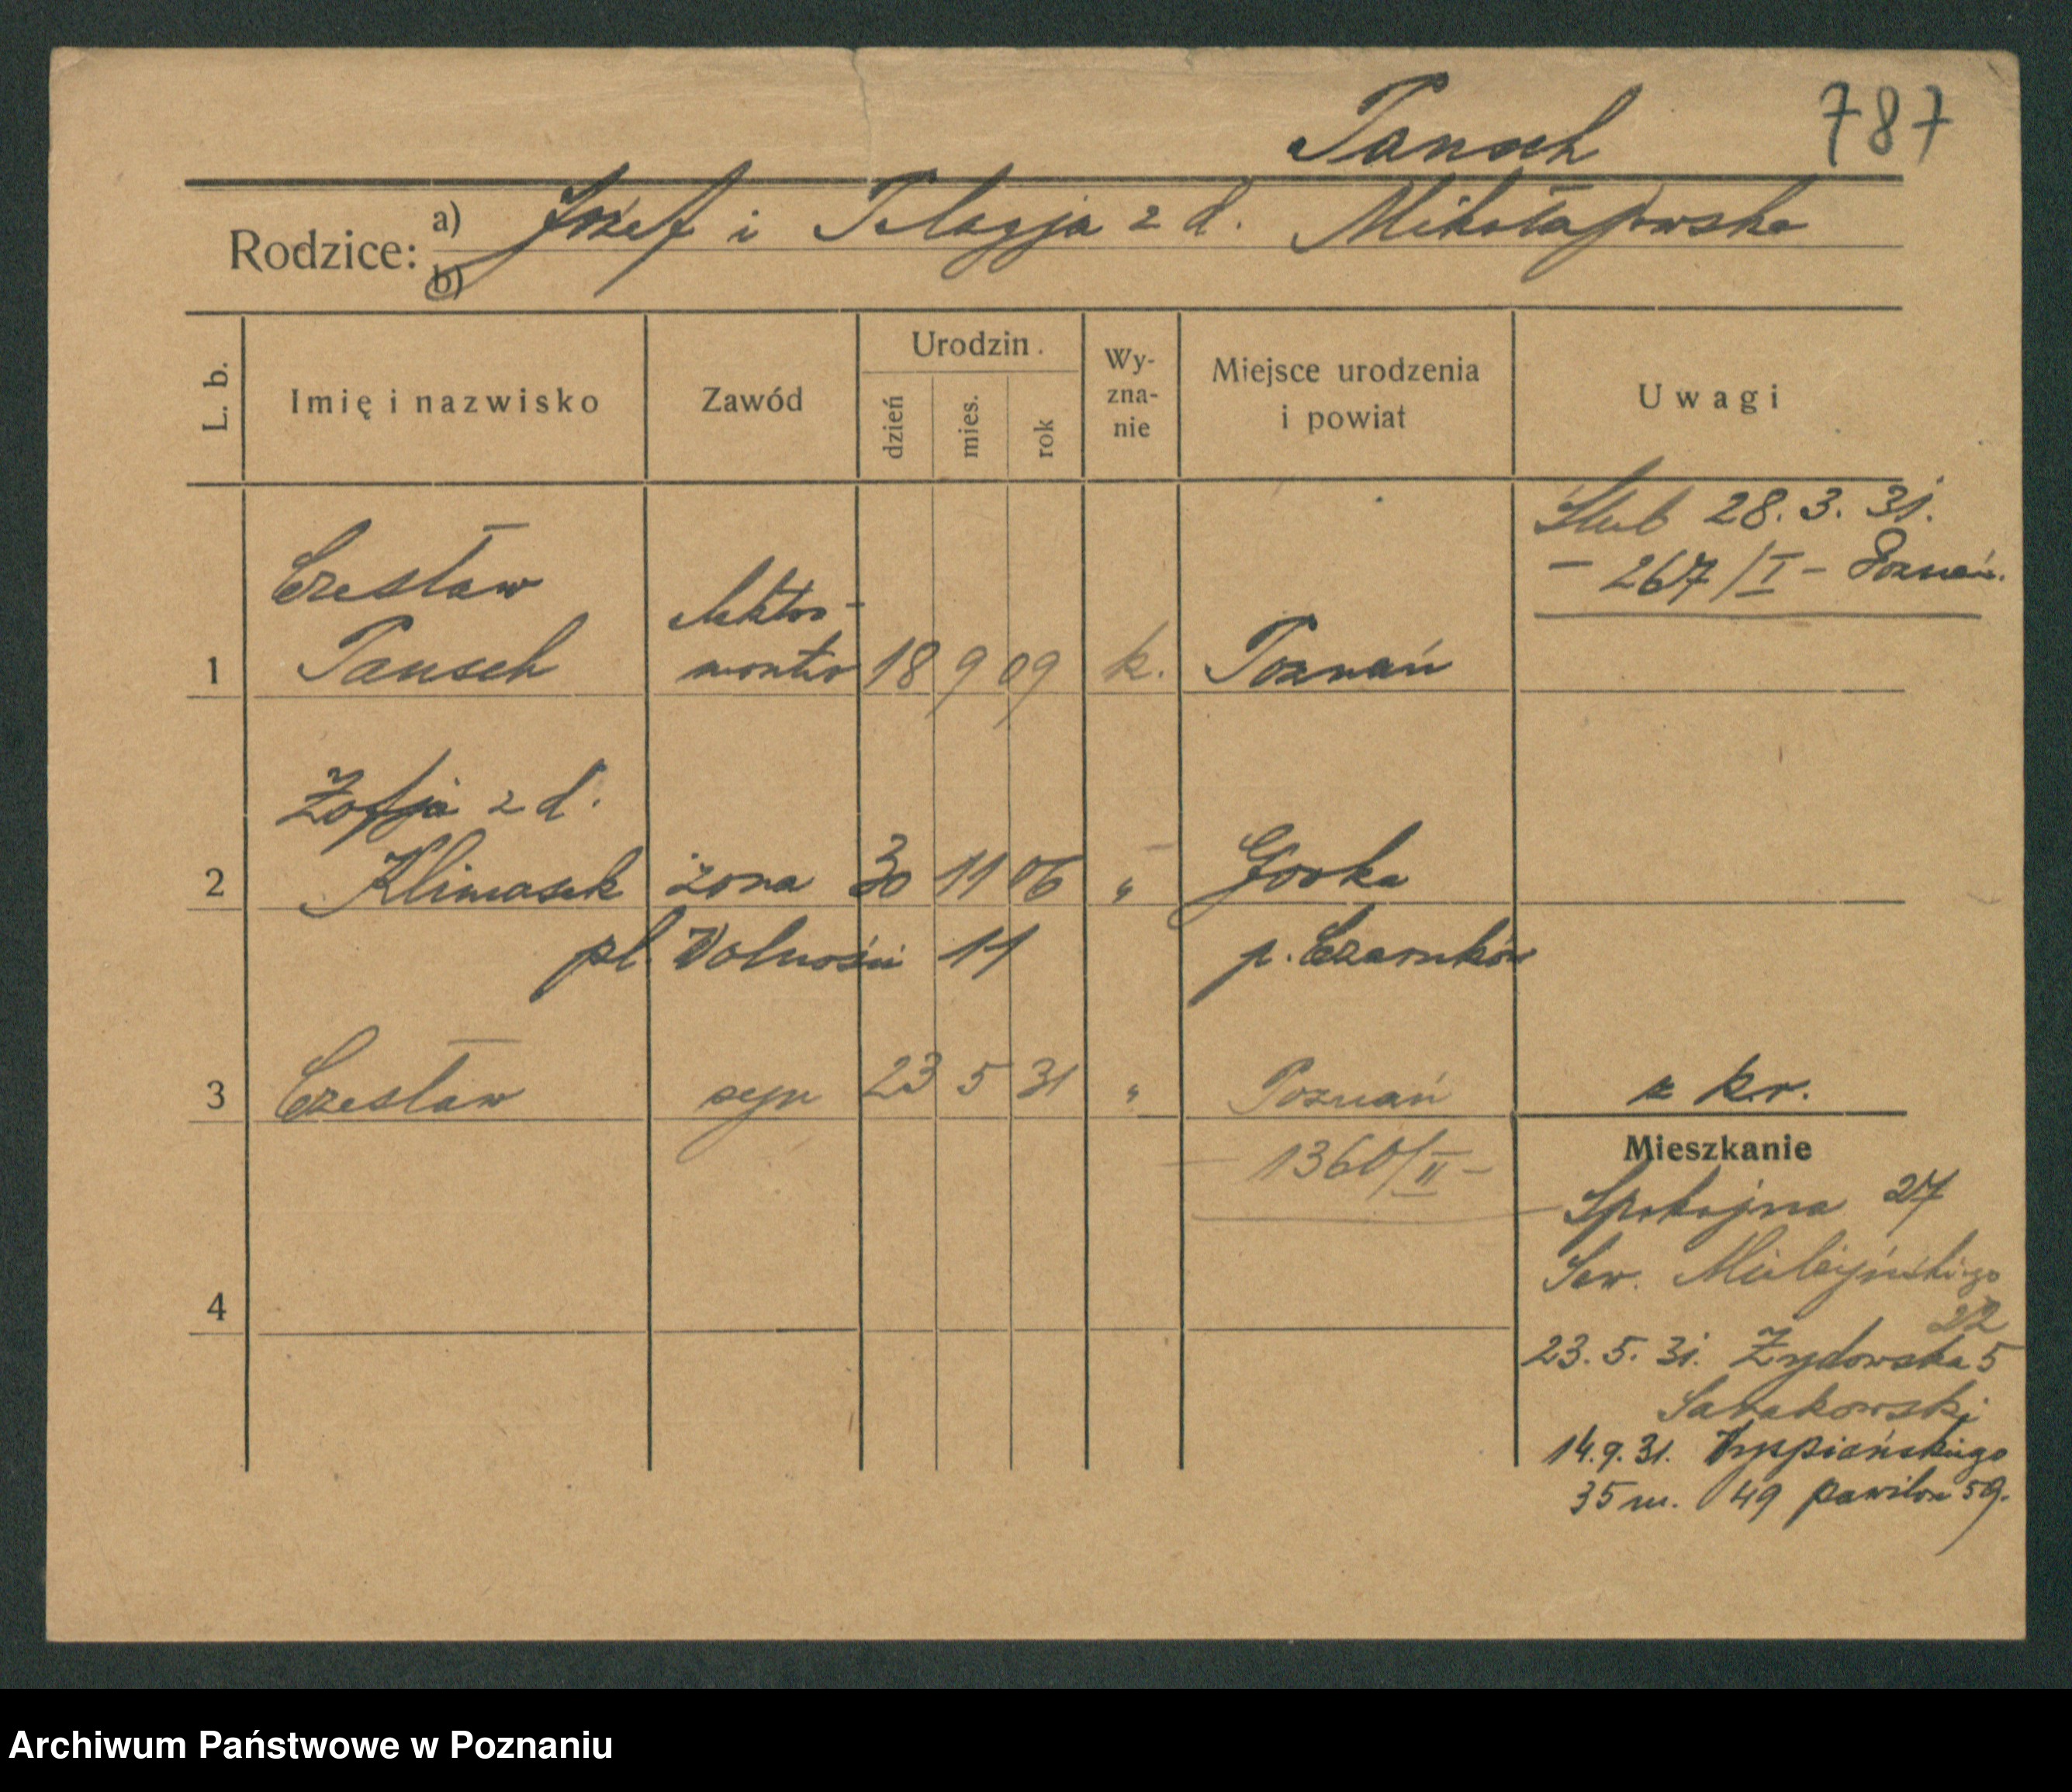 787
Pansch
Rodzice: a) Józef i Pelagja z d. Mikołajewska
b)
L. b. Imię i nazwisko Zawód Urodzin. dzień mies. rok Wy-zna-nie Miejsce urodzenia i powiat Uwagi
Ślub 28. 3. 31.
- 267/I - Poznań.
Czesław elektro-
1 Pansch monter 18 9 09 k. Poznań
Zofja z d.
2 Klimasek żona 30 11 06 " Gorka
pl. Wolności 11 p. Czarnków
3 Czesław syn 23 5 31 " Poznań z k.r.
- 1360/II -
Mieszkanie
Spokojna 27
Sew. Mielżyńskiego
22
4
23. 5. 31. Żydowska 5
14. 9. 31. Wyspiańskiego
35 m. 49 pawilon 59.
Archiwum Państwowe w Poznaniu